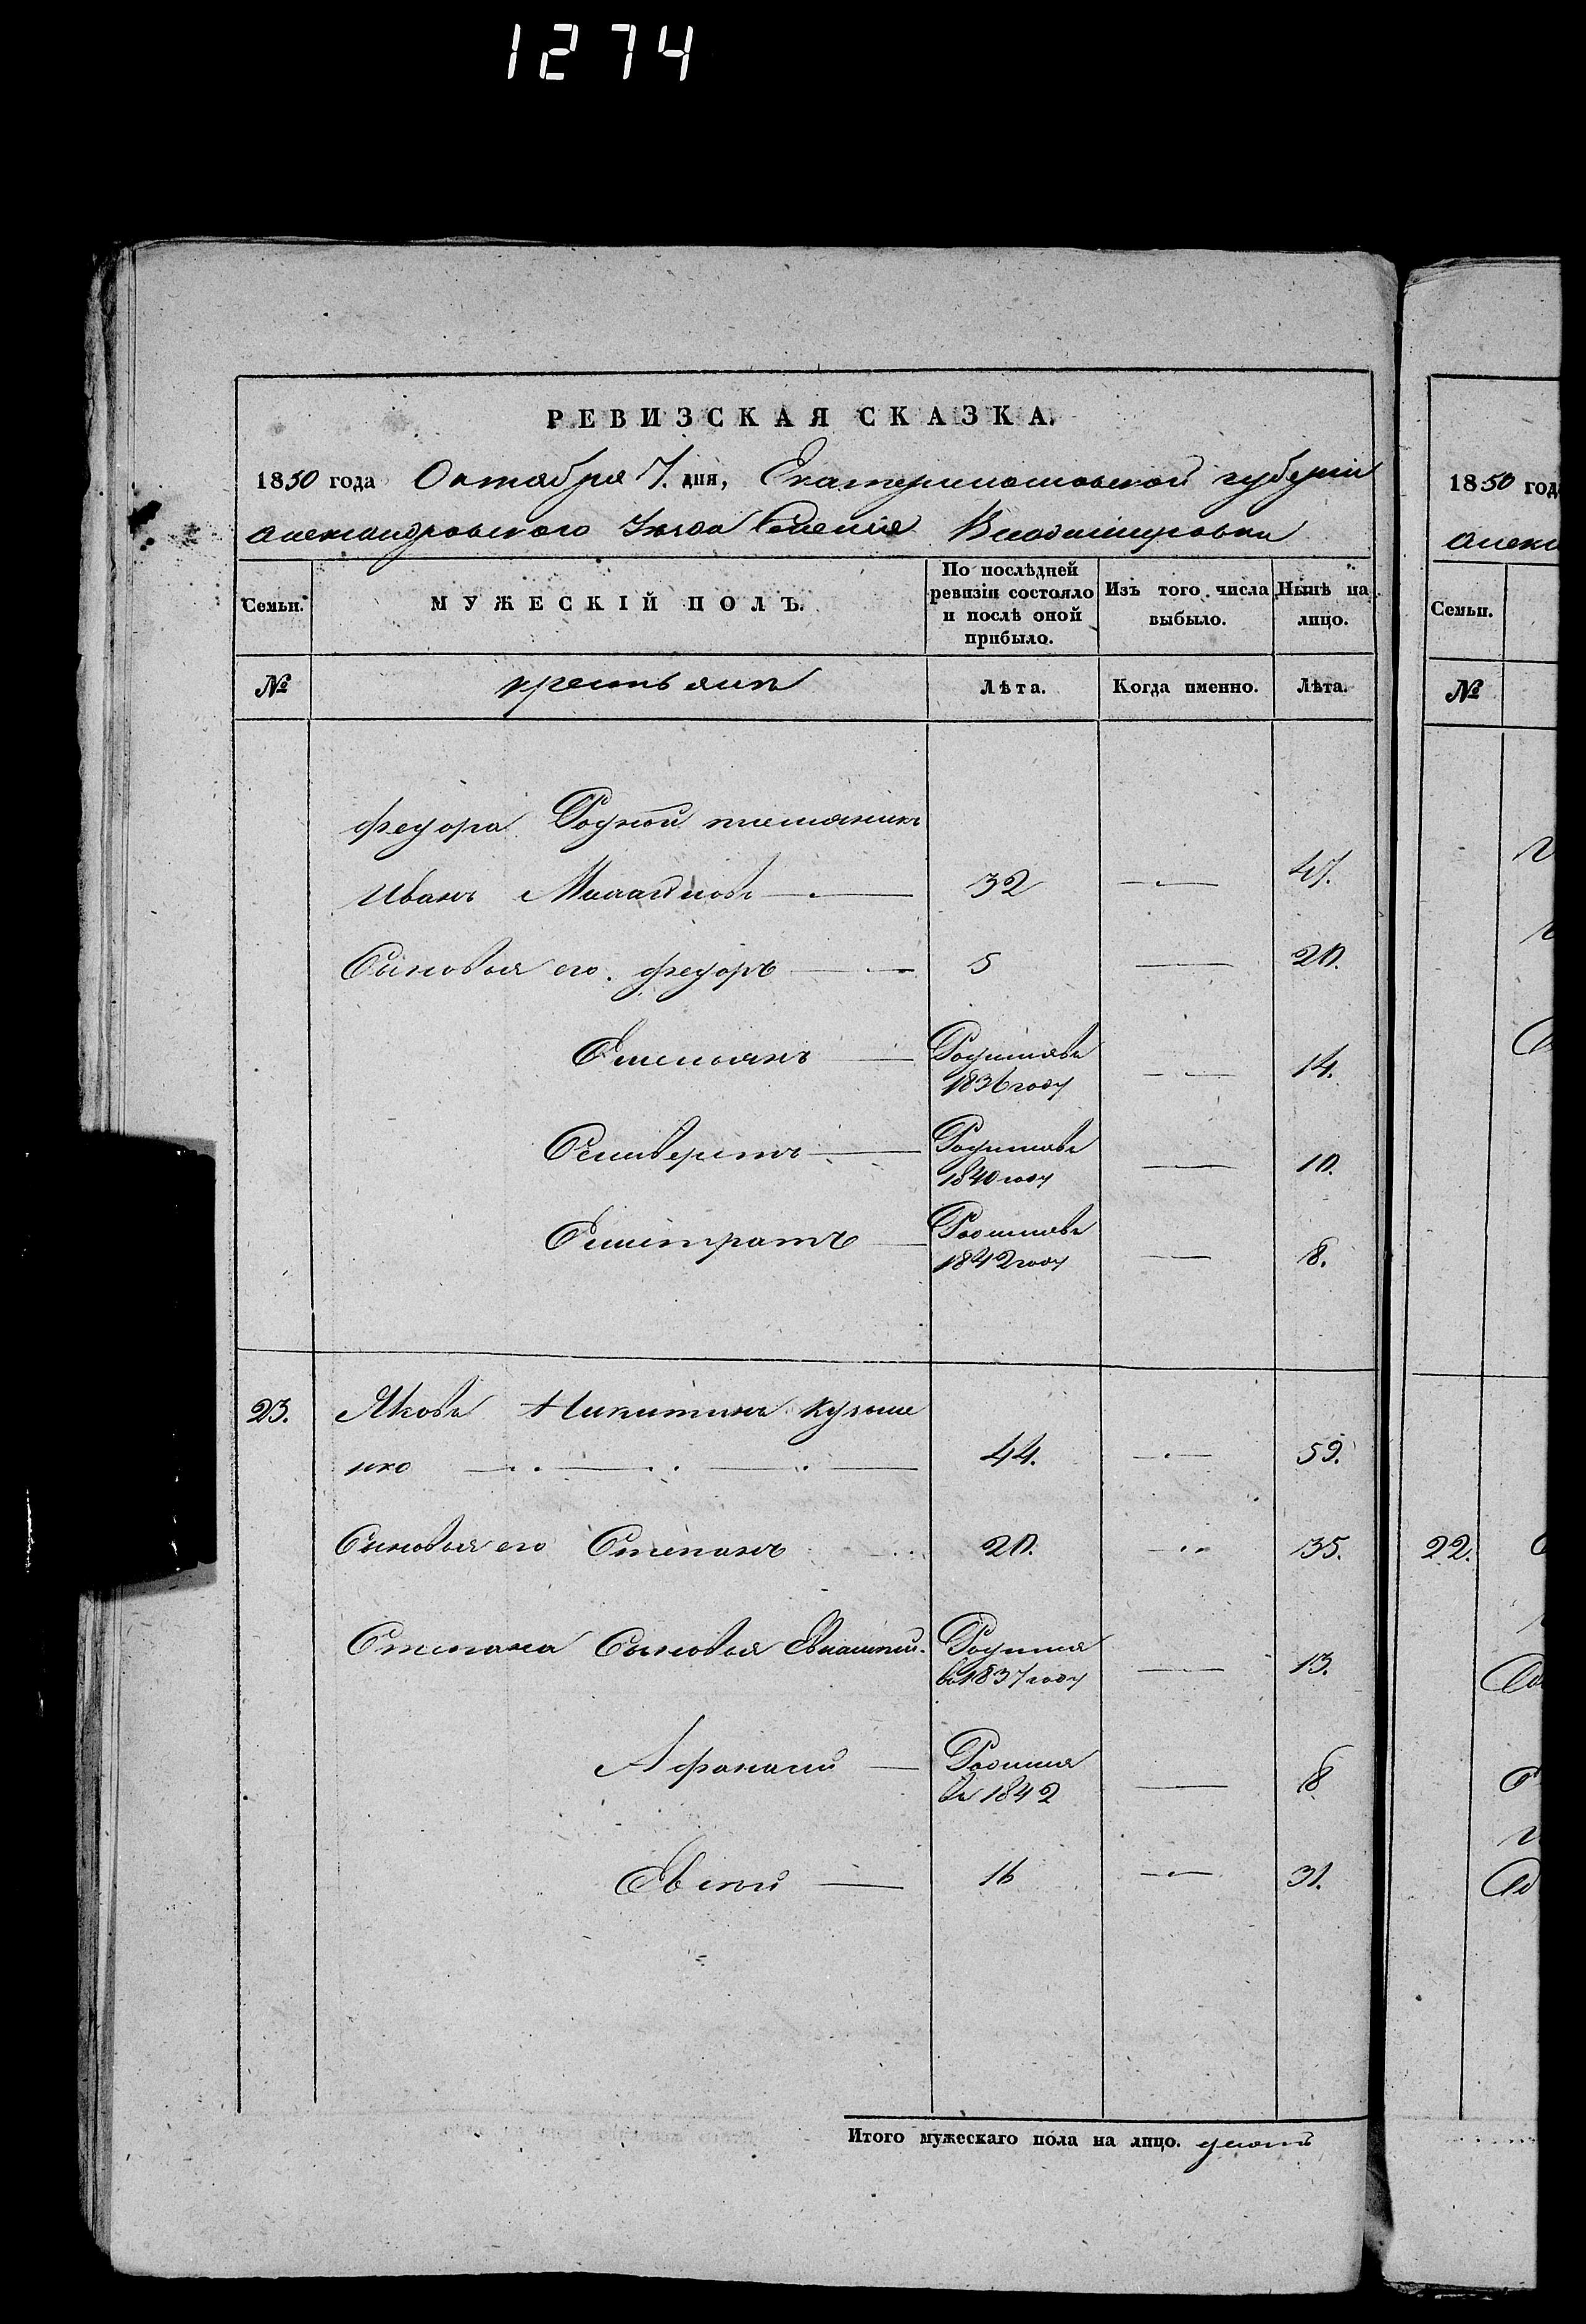 1274
РЕВИЗСКАЯ СКАЗКА.
1850 года Октября 7. дня, Екатеринославской губерніи
Александровскаго Уезда Селенія Владиміровки
Семьи.
МУЖЕСКІЙ ПОЛЪ.
По послѣдней
ревизіи состояло
и послѣ оной
прибыло.
Изъ того числа
выбыло.
Нынѣ на
лицо.
№
крестьянъ
Лѣта.
Когда именно.
Лѣта.
Федора Родной племяникъ
Иванъ Михайловъ 32 47.
Сыновья его. Федоръ 5 20.
Емельянъ Родившевъ
1836 году 14.
Селиверстъ Родившевъ
1840 году 10.
Родившевъ
1842 году 8.
23. Яковъ Никитинъ Кузьме
нко 44. 59.
Сыновья его Степанъ 20. 35.
Степана Сыновья Евлампий. Родился
въ 1837 году 13.
Афанасий Родился
въ 1842 8
16 31.
Итого мужескаго пола на лицо.
1850 год
Алекс
Семьи.
№
22.